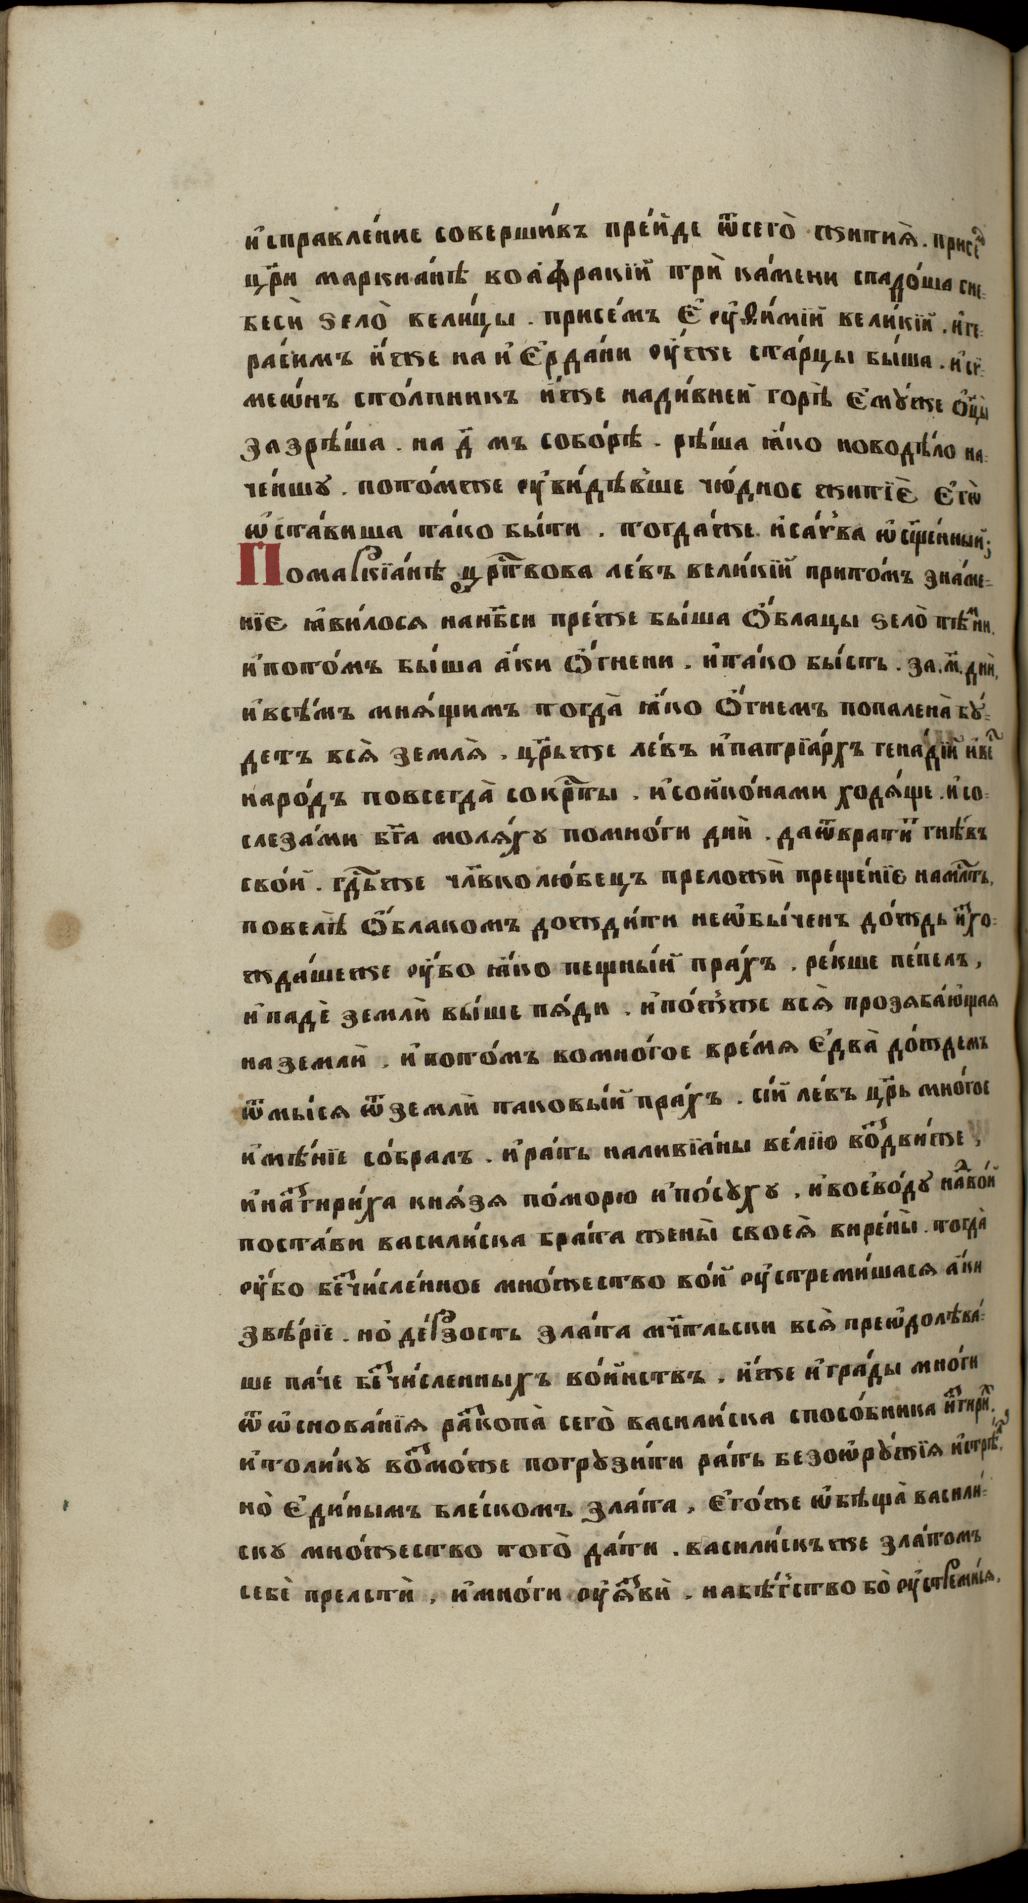 и҆справле́ние соверши́въ пре́йде ѿсего̀ житиѧ̀. присе́
цр҃и маркиа́нѣ воа҆фраки́й трѝ ка́мени спадо́ша сне
бесѝ ѕело̀ вели́цы. присе́мъ Є҆ѵѳи́мїй вели́кїй. и҆ге
раси́мъ и҆́же на и҆Єрда́ни оу҆́же ста́рцы бы́ша. и҆си
меѡ́нъ сто́лпникъ и҆́же нади́вней горѣ̀ Є҆му́же Ѻ҆ц҃ы̀
зазрѣ́ша. на д҃ мъ собо́рѣ. рѣ́ша ꙗ҆́ко новодѣ́ло на
че́ншу. пото́мже оу҆ви́дѣвше чю́дное житїѐ Є҆гѡ̀
ѡ҆ста́виша та́ко бы́ти. тогда́же и҆са́ѵва ѡ҆сщ҃е́нный;
Помаркїа́нѣ црⷭ҇твова ле́въ вели́кїй прито́мъ зна́ме
нїе ꙗ҆ви́лося нанб҃си пре́же бы́ша Ѻ҆́блацы ѕело̀ те́мни.
и҆пото́мъ бы́ша а҆́ки Ѻ҆́гнени. и҆та́ко бы́сть. за.м҃.днѝ,
и҆всѣ́мъ мня́щимъ тогда̀ ꙗ҆́ко Ѻ҆́гнемъ попалена̀ бу́
детъ всѧ̀ землѧ̀. цр҃ьже ле́въ и҆патрїа́рхъ гена́дїй и҆ве́
наро́дъ повсегда̀ сокрⷭ҇ты. и҆соико́нами ходя́ще. и҆со
слеза́ми бг҃а моля́ху помно́ги днѝ. даѿврати́т гнѣ́въ
сво́й. гдⷭ҇ьже чл҃вколю́бецъ преложѝ преще́нїе намлⷭ҇ть,
повелѣ̀ Ѻ҆́блакомъ дожди́ти неѡ҆бы́ченъ до́ждь и҆схо
жда́шеже оу҆́бо ꙗ҆́ко пещны́й пра́хъ. ре́кше пе́пелъ,
и҆падѐ землѝ вы́ше пя́ди. и҆по́жже всѧ̀ прозяба́ющая
наземлѝ. и҆пото́мъ вомно́гое вре́мя Є҆два̀ до́ждемъ
ѿмы́ся ѿземлѝ таковы́й пра́хъ. сі́й ле́въ цр҃ь мно́гое
и҆мѣ́нїе собра́лъ. и҆ра́ть наливїа́ны ве́лїю воздви́же,
и҆наⷥгири́ха кня́зя помо́рю и҆по́суху. и҆воево́ду наⷣво́й
поста́ви васили́ска бра́та жены̀ своеѧ̀ вире́ны. тогда̀
оу҆́бо беⷥчи́сленное мно́жество во́й оу҆стреми́шася а҆́ки
звѣ́рїе. но де́рзость зла́та мч҃тльски всѧ̀ преѡдолѣва́
ше па́че беⷥчи́сленныхъ во́инствъ. и҆́же и҆гра́ды мно́ги
ѿѡ҆снова́нїя раⷥкопа̀ сего̀ васили́ска спосо́бника и҆згири́х.
и҆толи́ку воⷥмо́же погрузи́ти ра́ть безоѡру́жїя и҆стрѣ́л.
но̀ Є҆ди́нымъ бле́скомъ зла́та, Є҆го́же ѡ҆бѣща̀ васили́
ску мно́жество того̀ да́ти. васили́скъже зла́томъ
себѐ прельстѝ, и҆мно́ги оу҆ꙗⷥвѝ, набѣ́гство бо̀ оу҆стреми́ся,